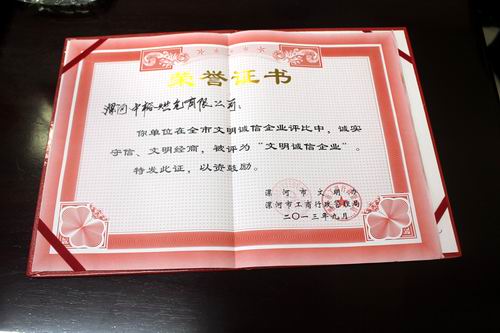 荣誉证书
漯河中裕燃气有限公司：
你单位在全市文明诚信企业评比中，诚实
守信、文明经商，被评为“文明诚信企业”。
特发此证，以资鼓励。
漯河市文明办
漯河市工商行政管理局
二〇一三年九月